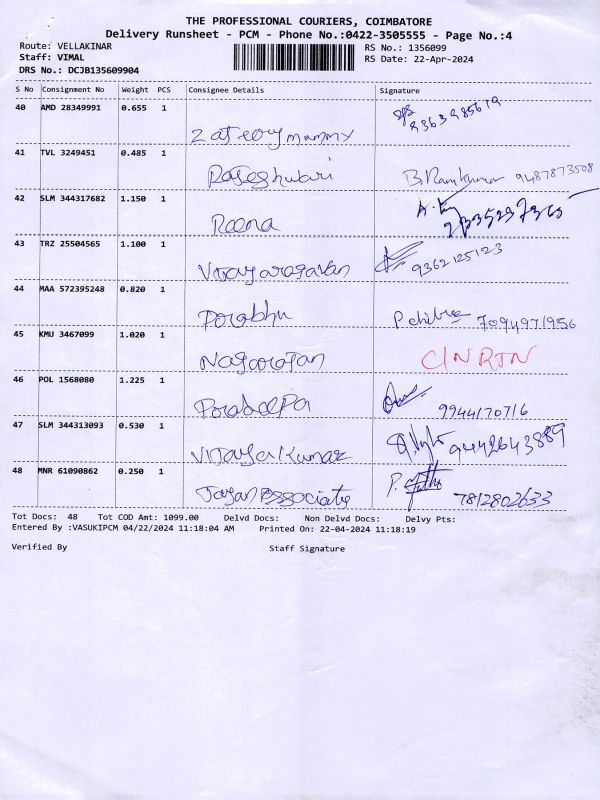 THE PROFESSIONAL COURIERS, COIMBATORE
Delivery Runsheet - PCM - Phone No.:0422-3505555 - Page No.:4
Route: VELLAKINAR
RS No.: 1356099
Staff: VIMAL
RS Date: 22-Apr-2024
DRS No.: DCJB135609904
S No Consignment No Weight PCS Consignee Details Signature
40 AMD 28349991 0.655 1
9363985619
41 TVL 3249451 0.485 1
Rajeshwari B. Ramkumar 9487873508
42 SLM 344317682 1.150 1
Reena
43 TRZ 25504565 1.100 1
Vijayaragavan 9362125123
44 MAA 572395248 0.820 1
Prabhu 7094971956
45 KMU 3467099 1.020 1
Nagarajan C/N RTN
46 POL 1568080 1.225 1
9944170716
47 SLM 344313093 0.530 1
Vijayakumar 9442643889
48 MNR 61090862 0.250 1
Jayan Associats 7812802633
Tot Docs: 48 Tot COD Amt: 1099.00 Delvd Docs: Non Delvd Docs: Delvy Pts:
Entered By :VASUKIPCM 04/22/2024 11:18:04 AM Printed On: 22-04-2024 11:18:19
Verified By Staff Signature